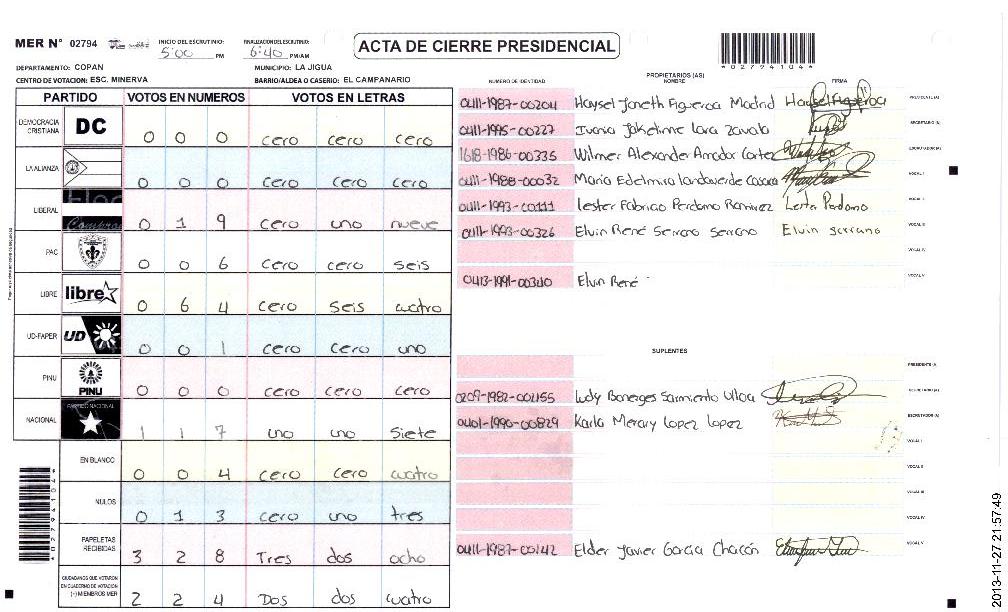 MER N° 02794 INICIO DEL ESCRUTINIO: 5:00 PM FINALIZACION DEL ESCRUTINIO: 6:40 PM/AM
ACTA DE CIERRE PRESIDENCIAL
*02794104*
DEPARTAMENTO: COPAN MUNICIPIO: LA JIGUA
CENTRO DE VOTACION: ESC. MINERVA BARRIO/ALDEA O CASERIO: EL CAMPANARIO
PARTIDO VOTOS EN NUMEROS VOTOS EN LETRAS
DEMOCRACIA CRISTIANA DC 0 0 0 cero cero cero
LA ALIANZA 0 0 0 cero cero cero
LIBERAL 0 1 9 cero uno nueve
PAC 0 0 6 cero cero seis
LIBRE libre 0 6 4 cero seis cuatro
UD-FAPER UD 0 0 1 cero cero uno
PINU PINU 0 0 0 cero cero cero
NACIONAL PARTIDO NACIONAL 1 1 7 uno uno siete
EN BLANCO 0 0 4 cero cero cuatro
NULOS 0 1 3 cero uno tres
PAPELETAS RECIBIDAS 3 2 8 Tres dos ocho
CIUDADANOS QUE VOTARON EN CUADERNO DE VOTACION (-) MIEMBROS MER 2 2 4 Dos dos cuatro
*02794104*
PROPIETARIOS (AS)
NUMERO DE IDENTIDAD NOMBRE FIRMA
0411-1987-00204 Haysel Janeth Figueroa Madrid Haysel Figueroa PRESIDENTE (A)
0411-1995-00227 Ivania Jakelinne Lara Zavala SECRETARIO (A)
1618-1986-00335 Wilmer Alexander Amador Cortez ESCRUTADOR (A)
0411-1988-00032 Maria Edelmira Landaverde VOCAL I
0411-1993-00111 Lester Fabricio Perdomo Ramirez Lester Perdomo VOCAL II
0411-1993-00326 Elvin René Serrano Serrano Elvin Serrano VOCAL III
VOCAL IV
0413-1991-00340 Elvin René VOCAL V
SUPLENTES
PRESIDENTE (A)
0209-1982-00455 Ludy Bonerges Sarmiento Ulloa SECRETARIO (A)
0401-1990-00829 Karla Merary Lopez Lopez ESCRUTADOR (A)
VOCAL I
VOCAL II
VOCAL III
VOCAL IV
0411-1987-00142 Elder Javier Garcia Chacón VOCAL V
2013-11-27 21:57:49